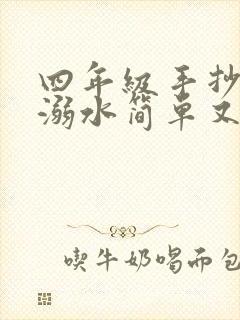 四年级手抄
溺水简单又
喫牛奶喝面包